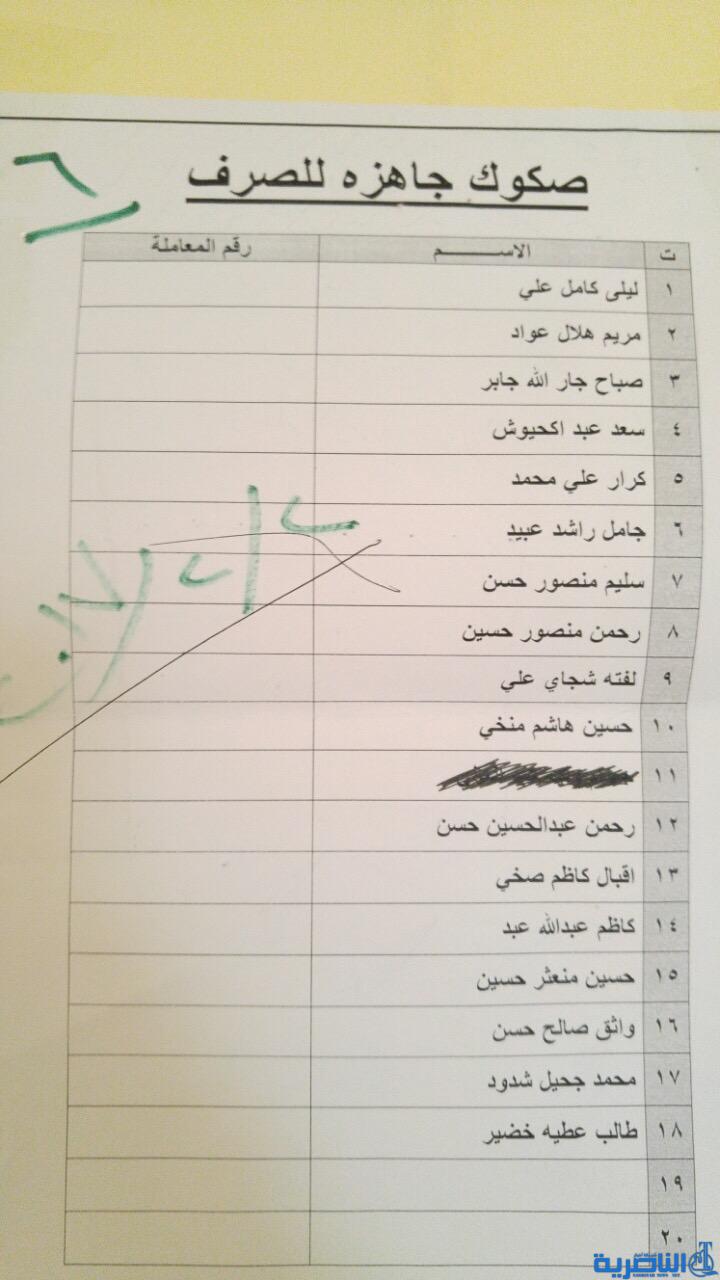 صكوك جاهزه للصرف
٦
ت الاســـــم رقم المعاملة
١ ليلى كامل علي
٢ مريم هلال عواد
٣ صباح جار الله جابر
٤ سعد عبد اكحيوش
٥ كرار علي محمد
٦ جامل راشد عبيد
٧ سليم منصور حسن
٨ رحمن منصور حسين
٩ لفته شجاي علي
١٠ حسين هاشم منخي
١١
١٢ رحمن عبدالحسين حسن
١٣ اقبال كاظم صخي
١٤ كاظم عبدالله عبد
١٥ حسين منعثر حسين
١٦ واثق صالح حسن
١٧ محمد جحيل شدود
١٨ طالب عطيه خضير
١٩
٢٠
الناصرية